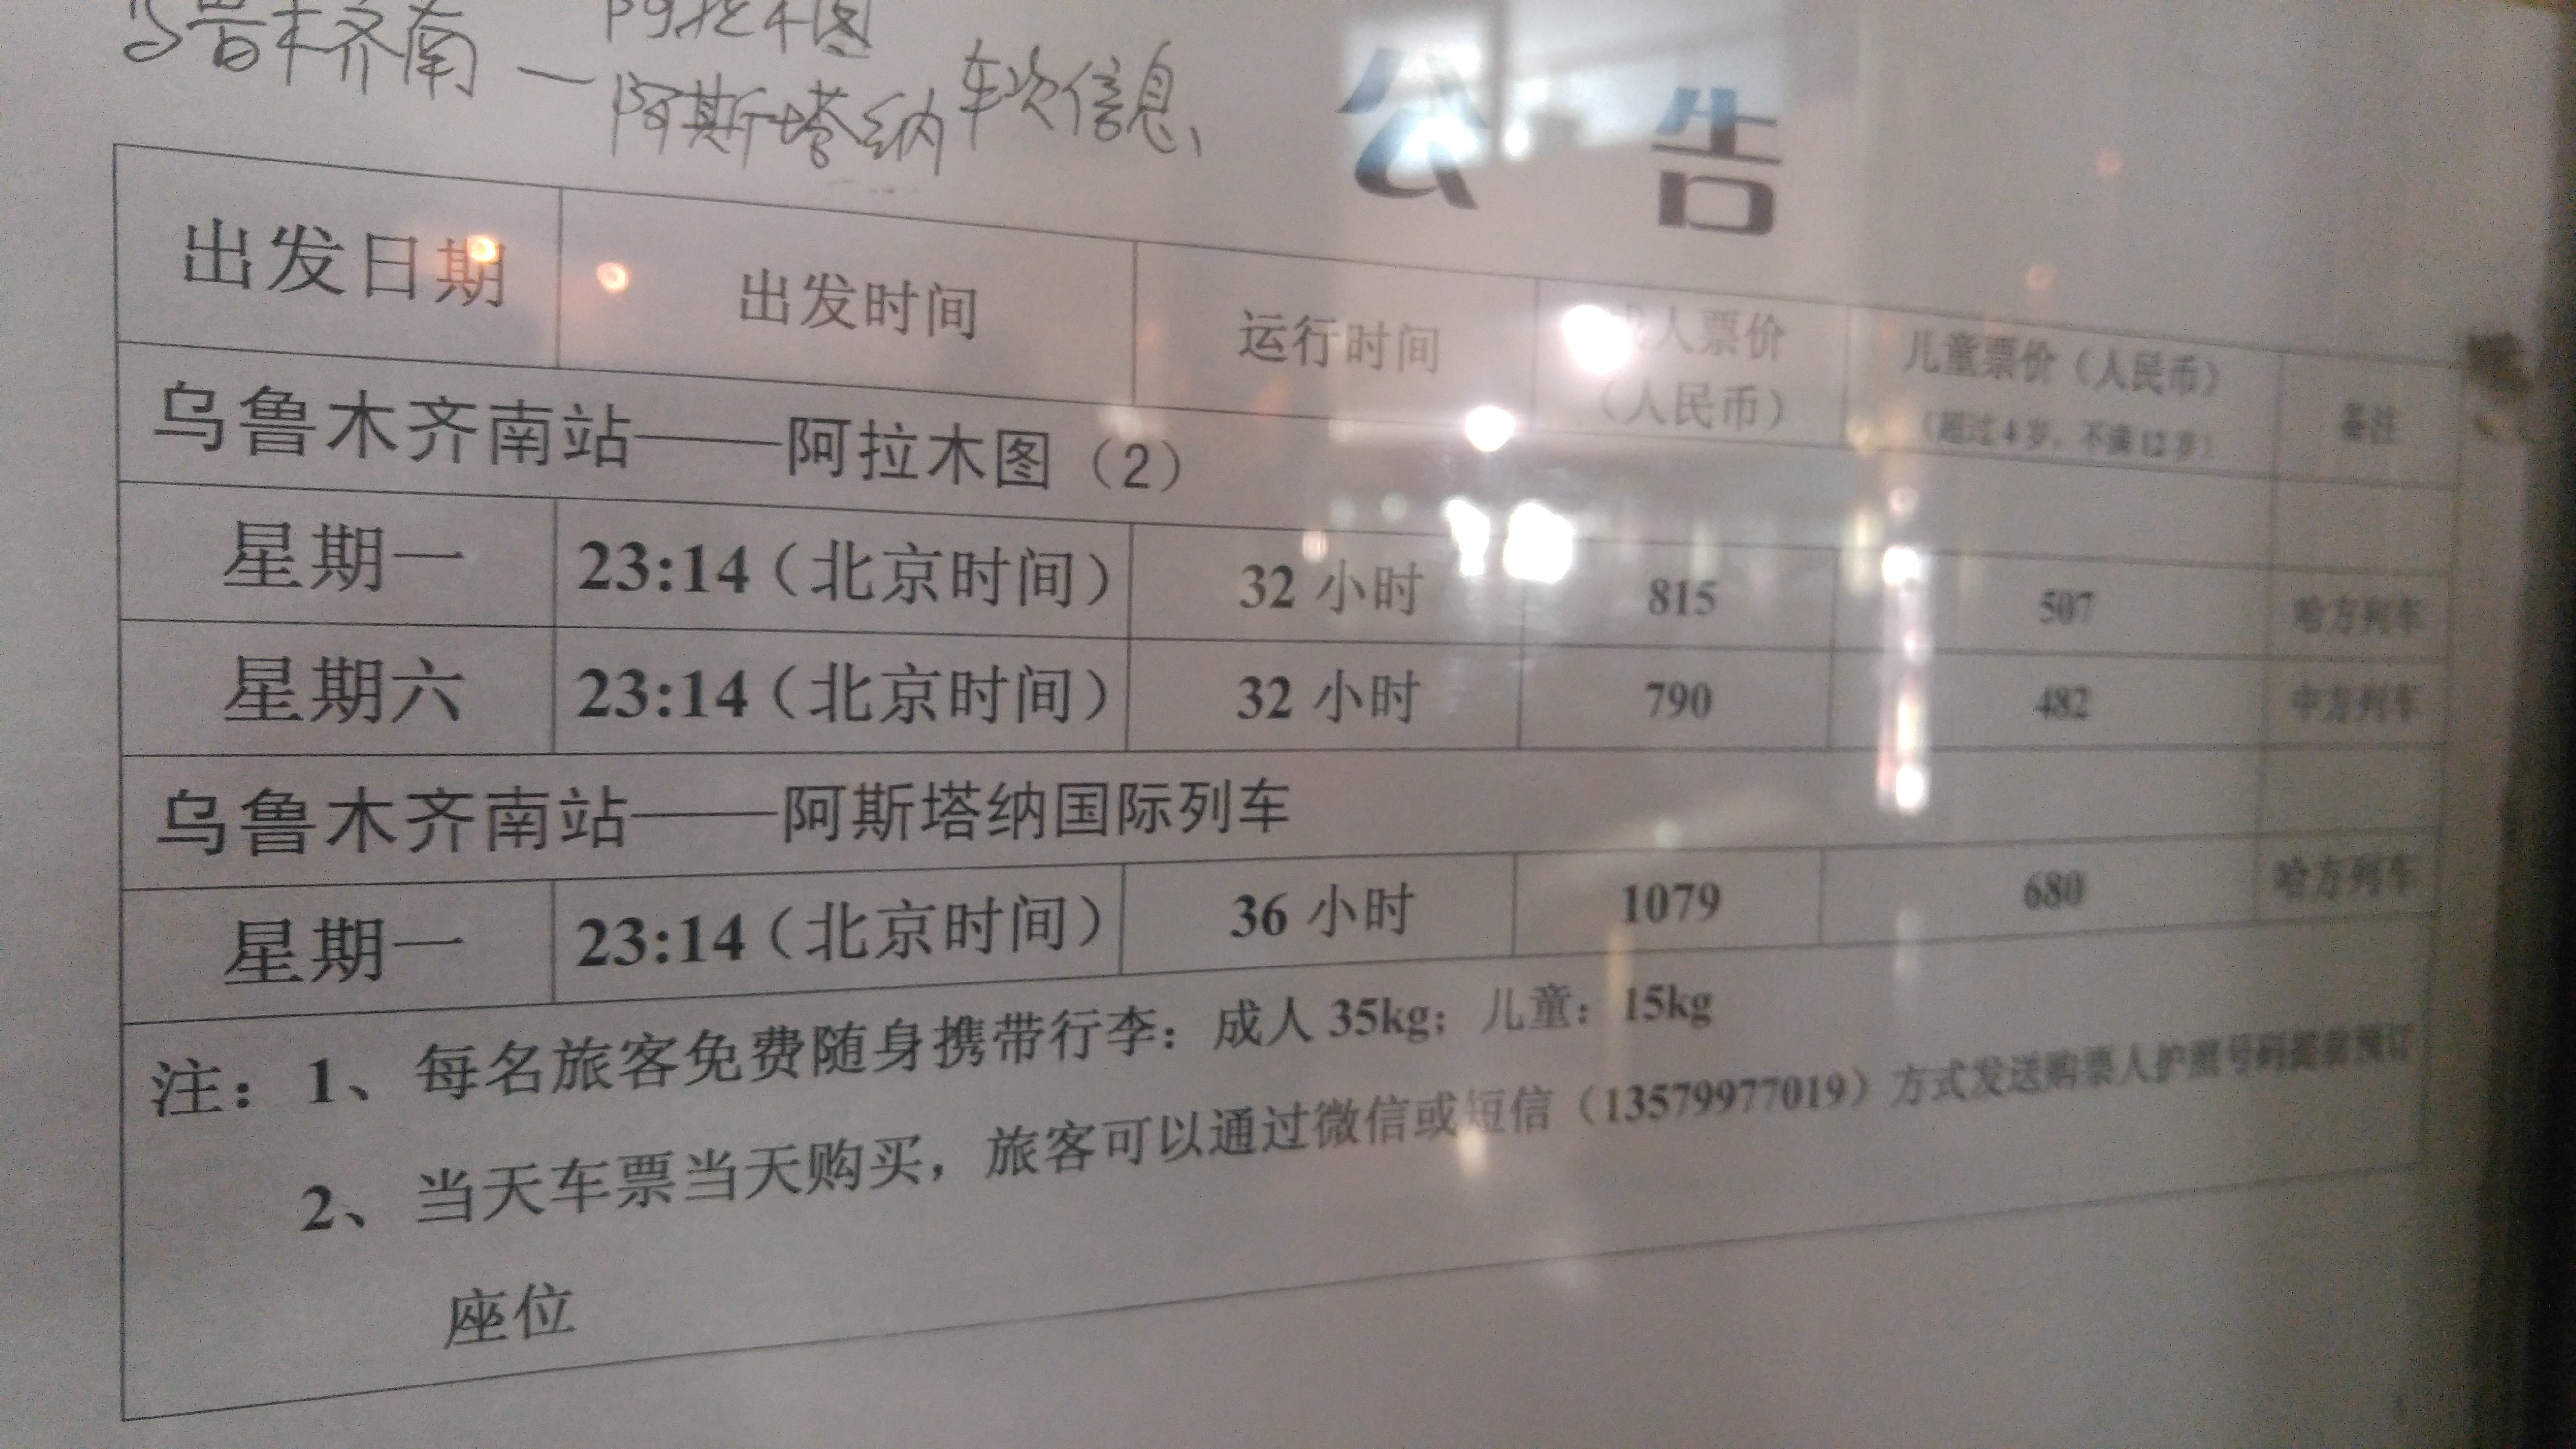 乌鲁木齐南 — 阿拉木图
阿斯塔纳 车次信息
公 告
出发日期 出发时间 运行时间 成人票价（人民币） 儿童票价（人民币）（超过4岁，不满12岁） 备注
乌鲁木齐南站——阿拉木图（2）
星期一 23:14（北京时间） 32 小时 815 507 哈方列车
星期六 23:14（北京时间） 32 小时 790 482 中方列车
乌鲁木齐南站——阿斯塔纳国际列车
星期一 23:14（北京时间） 36 小时 1079 680 哈方列车
注：1、每名旅客免费随身携带行李：成人 35kg；儿童：15kg
2、当天车票当天购买，旅客可以通过微信或短信（13579977019）方式发送购票人护照号码提前预订
座位